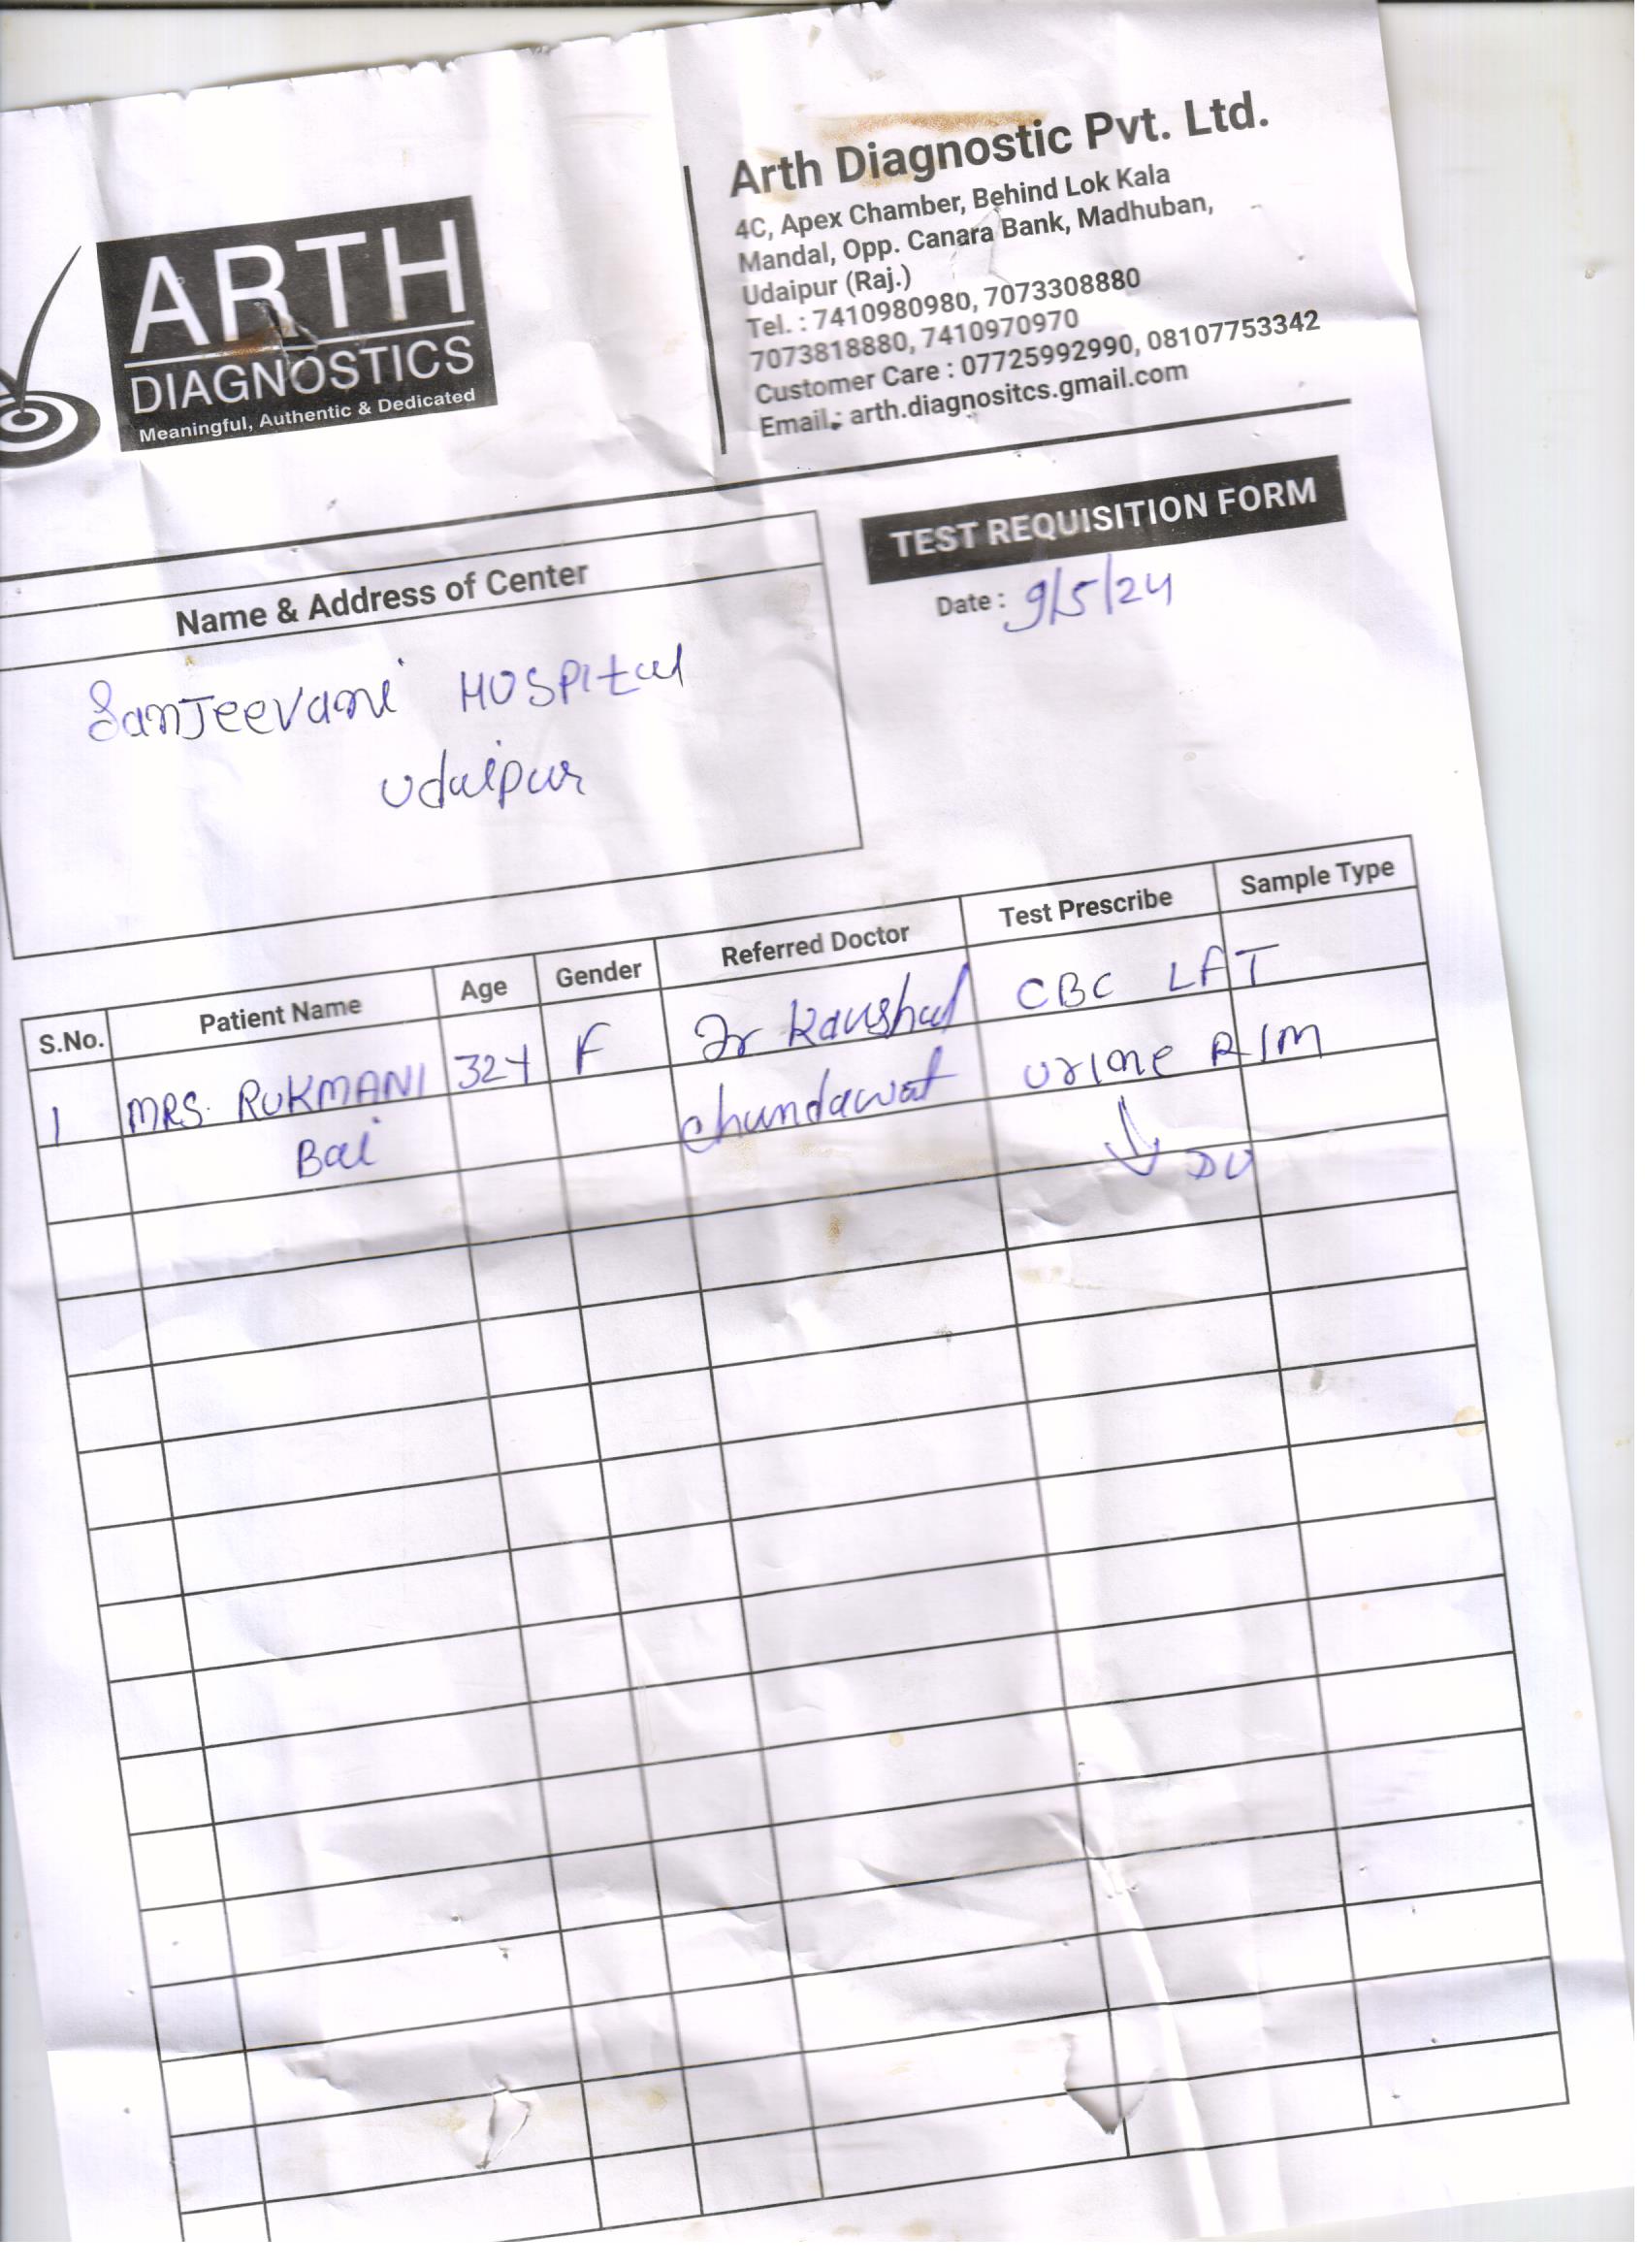 ARTH
DIAGNOSTICS
Meaningful, Authentic & Dedicated
Arth Diagnostic Pvt. Ltd.
4C, Apex Chamber, Behind Lok Kala
Mandal, Opp. Canara Bank, Madhuban,
Udaipur (Raj.)
Tel. : 7410980980, 7073308880
7073818880, 7410970970
Customer Care : 07725992990, 08107753342
Email : arth.diagnositcs.gmail.com
TEST REQUISITION FORM
Date : 9/5/24
Name & Address of Center
SanJeevani HOSPital
Udaipur
S.No. Patient Name Age Gender Referred Doctor Test Prescribe Sample Type
1 MRS. RUKMANI 32Y F Dr Kaushal CBC LFT
Bai Chundawat Urine R/M
DU